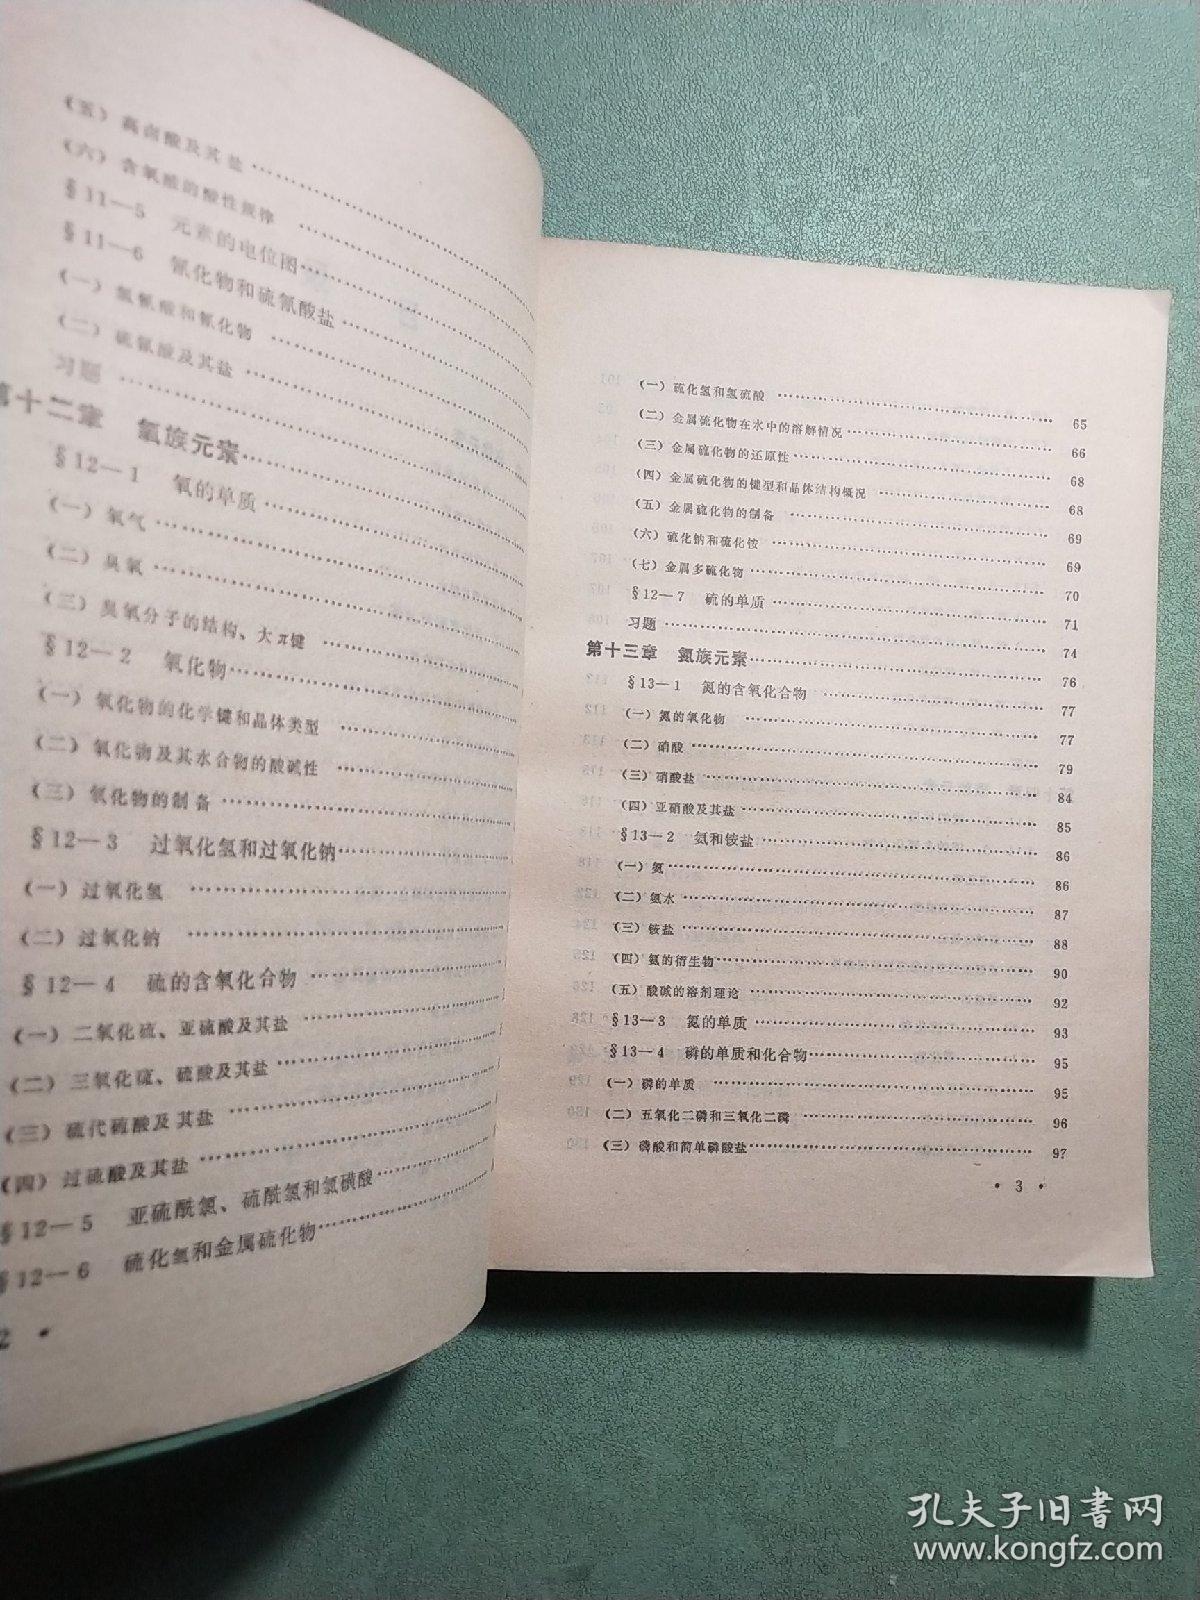 (五)高卤酸及其盐
(六)含氧酸的酸性规律
§11—5 元素的电位图
§11—6 氰化物和硫氰酸盐
(一)氢氰酸和氰化物
(二)硫氰酸及其盐
习题
第十二章 氧族元素
§12—1 氧的单质
(一)氧气
(二)臭氧
(三)臭氧分子的结构、大π键
§12—2 氧化物
(一)氧化物的化学键和晶体类型
(二)氧化物及其水合物的酸碱性
(三)氧化物的制备
§12—3 过氧化氢和过氧化钠
(一)过氧化氢
(二)过氧化钠
§12—4 硫的含氧化合物
(一)二氧化硫、亚硫酸及其盐
(二)三氧化硫、硫酸及其盐
(三)硫代硫酸及其盐
(四)过硫酸及其盐
§12—5 亚硫酰氯、硫酰氯和氯磺酸
§12—6 硫化氢和金属硫化物
2 •
(一)硫化氢和氢硫酸 65
(二)金属硫化物在水中的溶解情况 66
(三)金属硫化物的还原性 68
(四)金属硫化物的键型和晶体结构概况 68
(五)金属硫化物的制备 69
(六)硫化钠和硫化铵 69
(七)金属多硫化物 70
§12—7 硫的单质 71
习题 74
第十三章 氮族元素 76
§13—1 氮的含氧化合物 77
(一)氮的氧化物 77
(二)硝酸 79
(三)硝酸盐 84
(四)亚硝酸及其盐 85
§13—2 氨和铵盐 86
(一)氨 86
(二)氨水 87
(三)铵盐 88
(四)氨的衍生物 90
(五)酸碱的溶剂理论 92
§13—3 氮的单质 93
§13—4 磷的单质和化合物 95
(一)磷的单质 95
(二)五氧化二磷和三氧化二磷 96
(三)磷酸和简单磷酸盐 97
• 3 •
孔夫子旧书网
www.kongfz.com